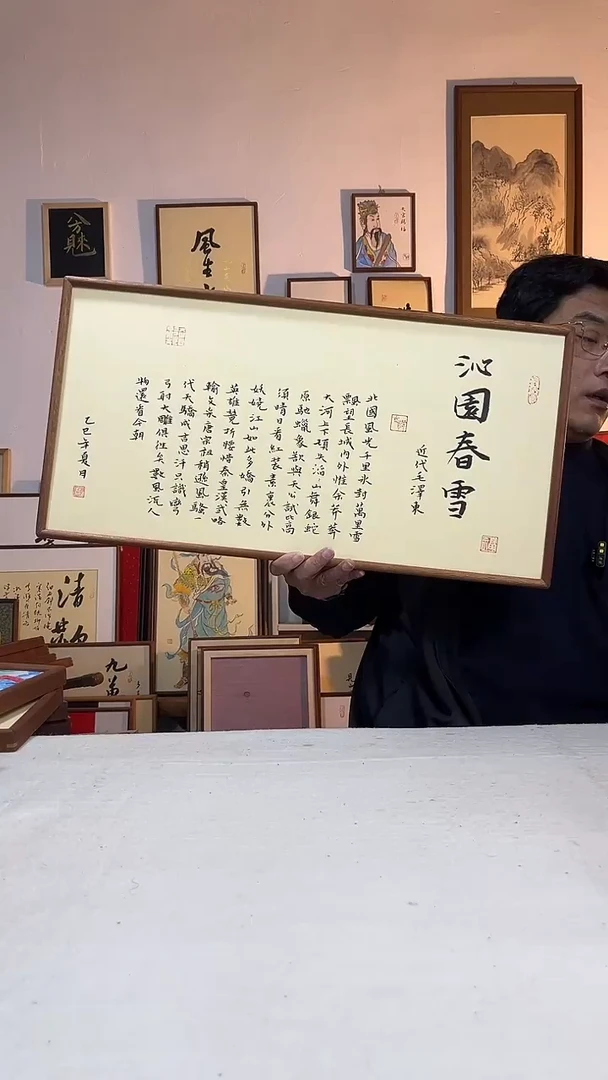 沁園春雪
近代毛澤東
北國風光千里冰封萬里雪
飄望長城內外惟余莽莽
大河上下頓失滔〻山舞銀蛇
原馳蠟象欲與天公試比高
須晴日看紅裝素裹分外
妖嬈江山如此多嬌引無數
英雄競折腰惜秦皇漢武略
輸文采唐宗祖稍遜風騷一
代天驕成吉思汗只識彎
弓射大雕俱往矣數風流人
物還看今朝
乙巳年夏日
天官賜福
風生
清
九萬